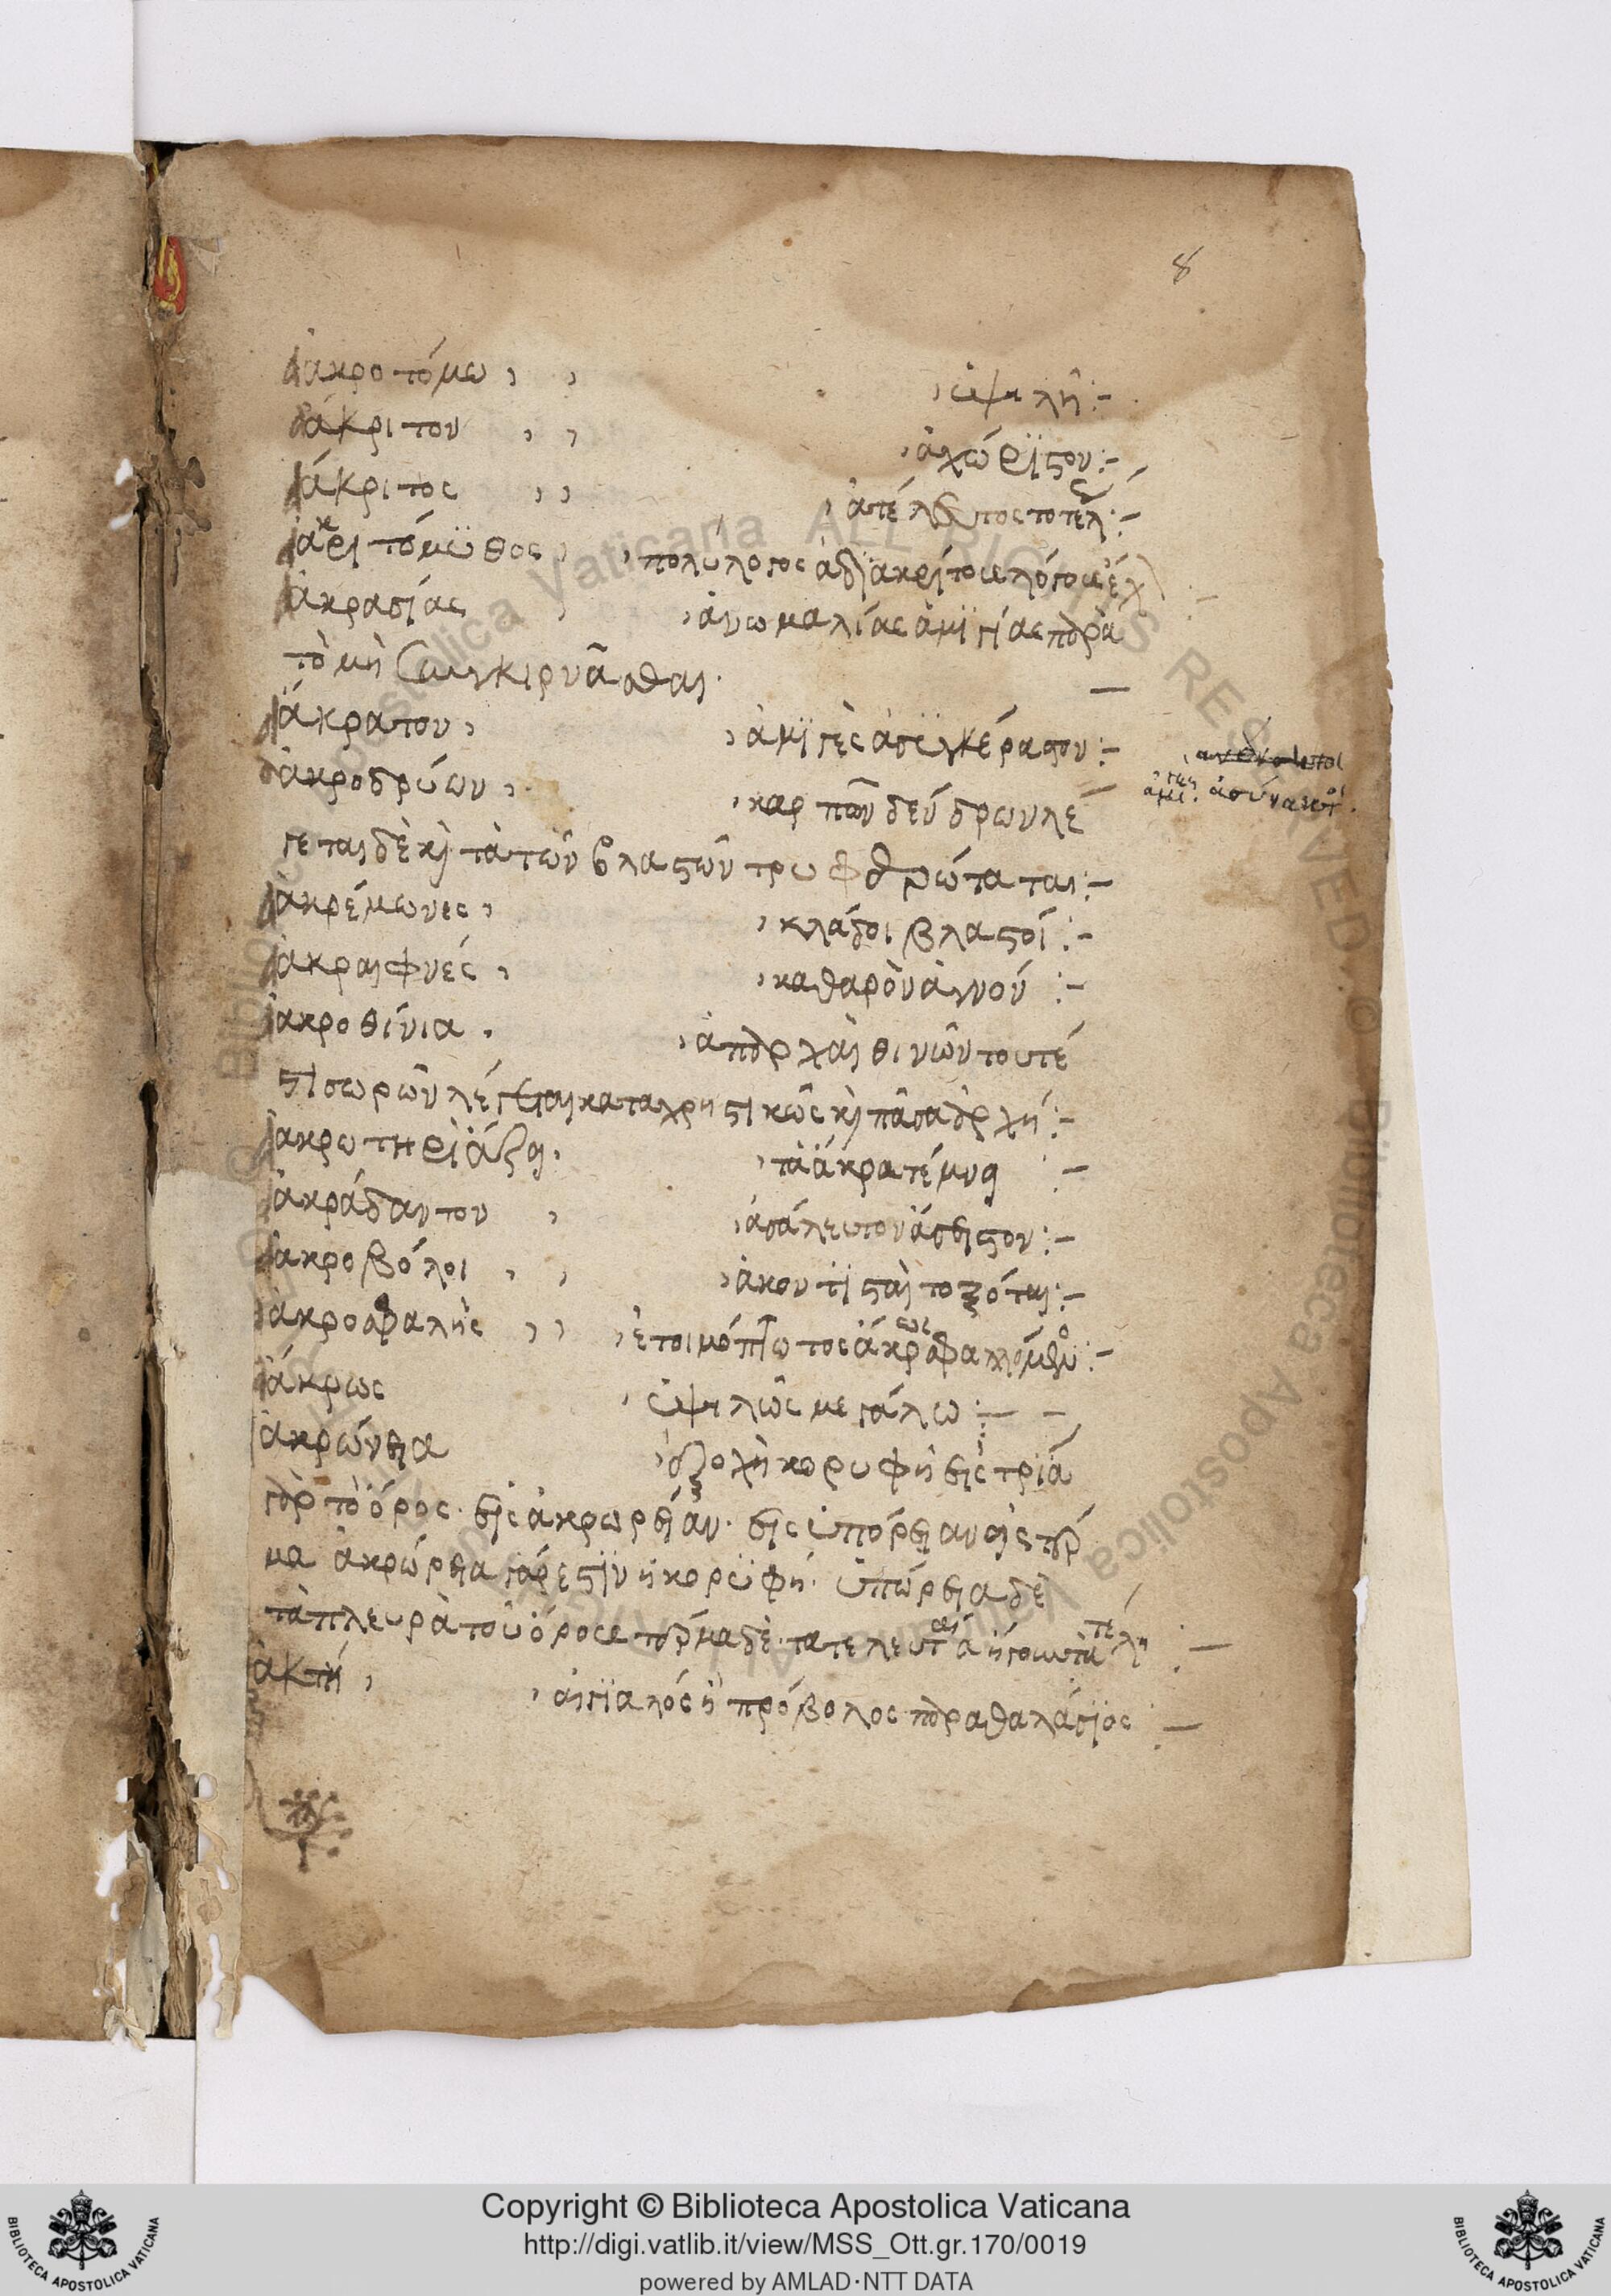 8
ἀκροτόμω, , ὑψηλῆ:-
ἄκριτον , , ἀχώριστον:-
ἄκριτος , , ἀτέλεστος
ἀκριτόμυθος, πολύλογος ἀδιακρίτους λόγους ἔχ
ἀκρασίας , ἀνωμαλίας ἀμιγίας παρὰ
τὸ μὴ συγκιρνᾶσθαι. —
ἄκρατον, ἀμιγὲς ἀσυγκέραστον:-
ἀκροδρύων, καρπῶν δένδρων λέ
γεται δὲ καὶ τὰ τῶν βλαστῶν
ἀκρέμωνες, κλάδοι βλαστοί:-
ἀκραιφνές, καθαρὸν ἁγνόν:-
ἀκροθίνια, ἀπαρχαὶ θινῶν τουτέ
στι σωρῶν λέγεται καταχρηστικῶς καὶ πᾶσα ἀρχή:-
ἀκρωτηριάζει, τὰ ἄκρα τέμνει :-
ἀκράδαντον , ἀσάλευτον ἄσειστον:-
ἀκροβόλοι , , ἀκοντισταὶ τοξόται:-
ἀκροσφαλὴς , , ἑτοιμόπτωτος ἄκρως σφαλλόμενος:-
ἄκρως , ὑψηλῶς μεγάλως:- -
ἀκρώρεια , ἐξοχὴ κορυφῆς εἰς τρία
γὰρ τὸ ὄρος. εἰς ἀκρώρειαν. εἰς ὑπώρειαν εἰς τέρ
μα ἀκρώρεια γάρ ἐστιν ἡ κορυφή. ὑπώρεια δὲ
τὰ πλευρὰ τοῦ ὄρους τέρμα δὲ τὰ τελευταῖα ἤγουν τὰ τέλη :-
ἀκτή, αἰγιαλὸς ἢ πρόβολος παραθαλάσσιος :-
Copyright © Biblioteca Apostolica Vaticana
http://digi.vatlib.it/view/MSS_Ott.gr.170/0019
powered by AMLAD·NTT DATA
BIBLIOTECA APOSTOLICA VATICANA
BIBLIOTECA APOSTOLICA VATICANA